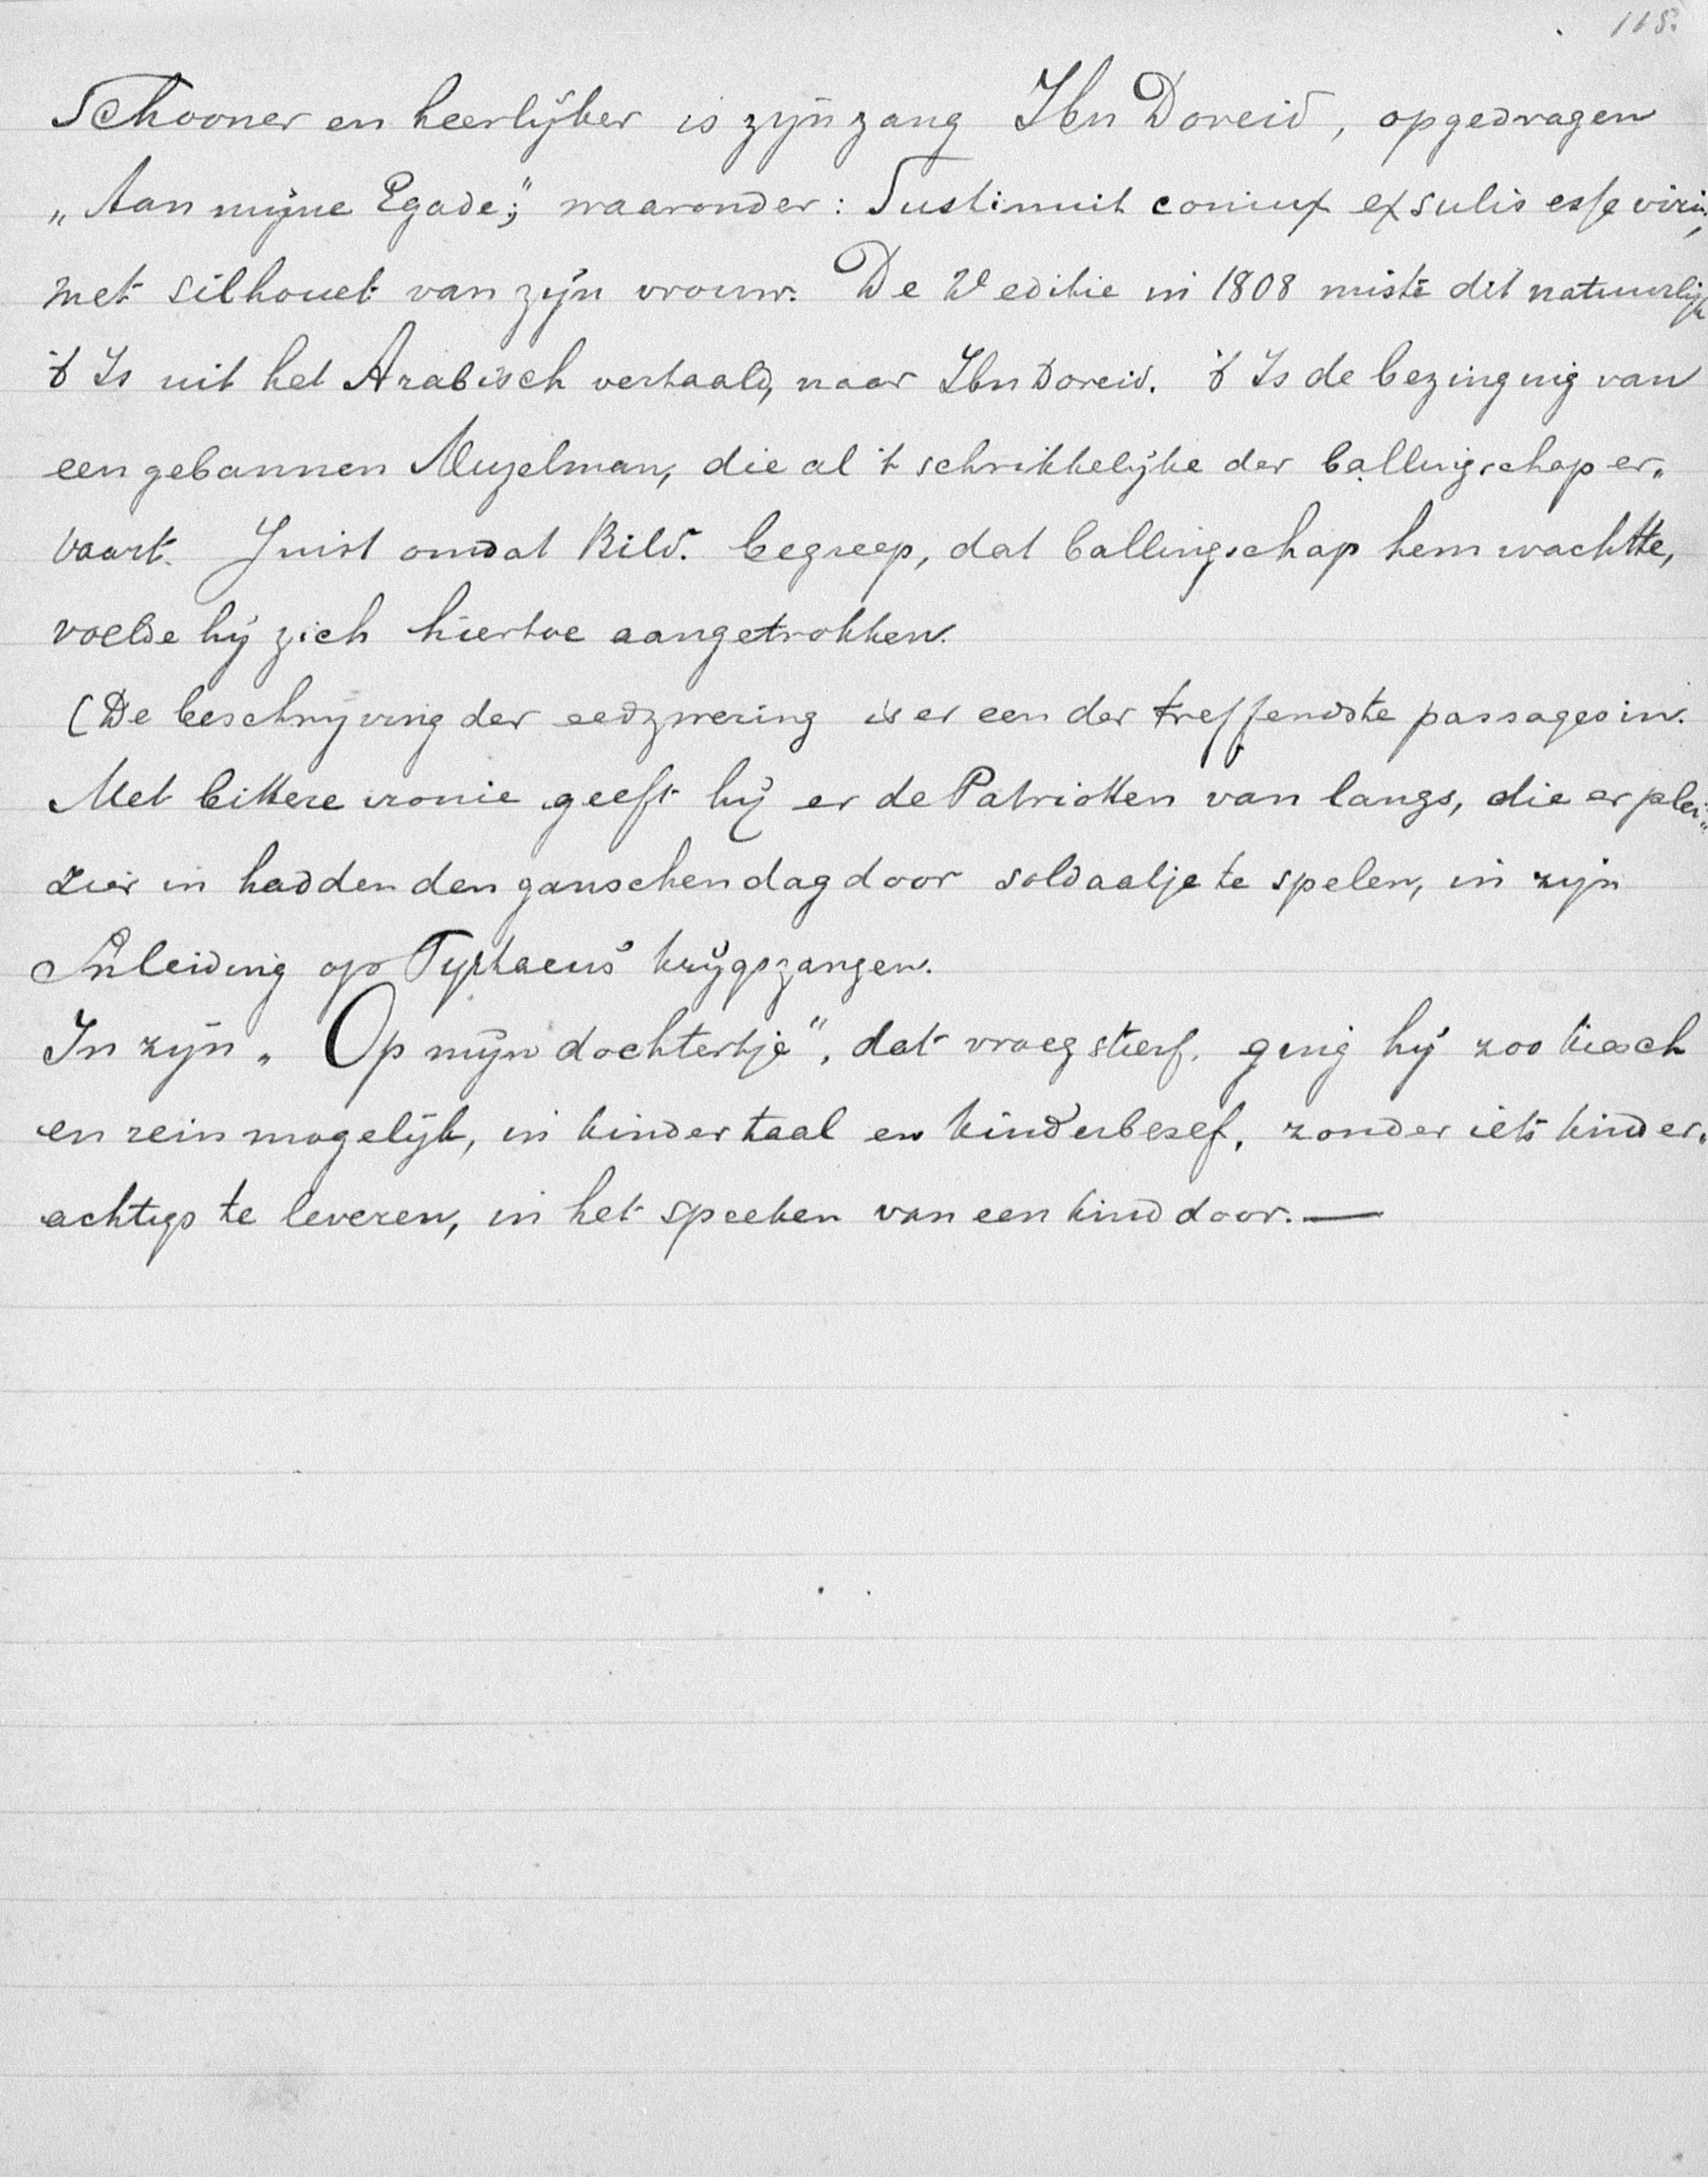 118.
Schooner en heerlijker is zijn zang Ibn Doreid, opgedragen
„Aan mijne Egade;” waaronder: Sustinuit coniux exsulis esse viri,
met silhouet van zijn vrouw. De 2e editie in 1808 miste dit natuurlijk
't Is uit het Arabisch vertaald, naar Ibn Doreid. 't Is de bezinging van
een gebannen Muzelman, die al 't schrikkelijke der ballingschap er„
vaart. Juist omdat Bild. begreep, dat ballingschap hem wachtte,
voelde hij zich hiertoe aangetrokken.
(De beschrijving der eedzwering is er een der treffendste passages in.
Met bittere ironie geeft hij er de Patriotten van langs, die er plei„
zier in hadden den ganschen dag door soldaatje te spelen, in zijn
Inleiding op Tyrtaeus krijgszangen.
In zijn „Op mijn dochtertje”, dat vroeg stierf, ging hij zoo kiesch
en rein mogelijk, in kindertaal en kinderbesef, zonder iets kinder„
achtigs te leveren, in het spreken van een kind door.—